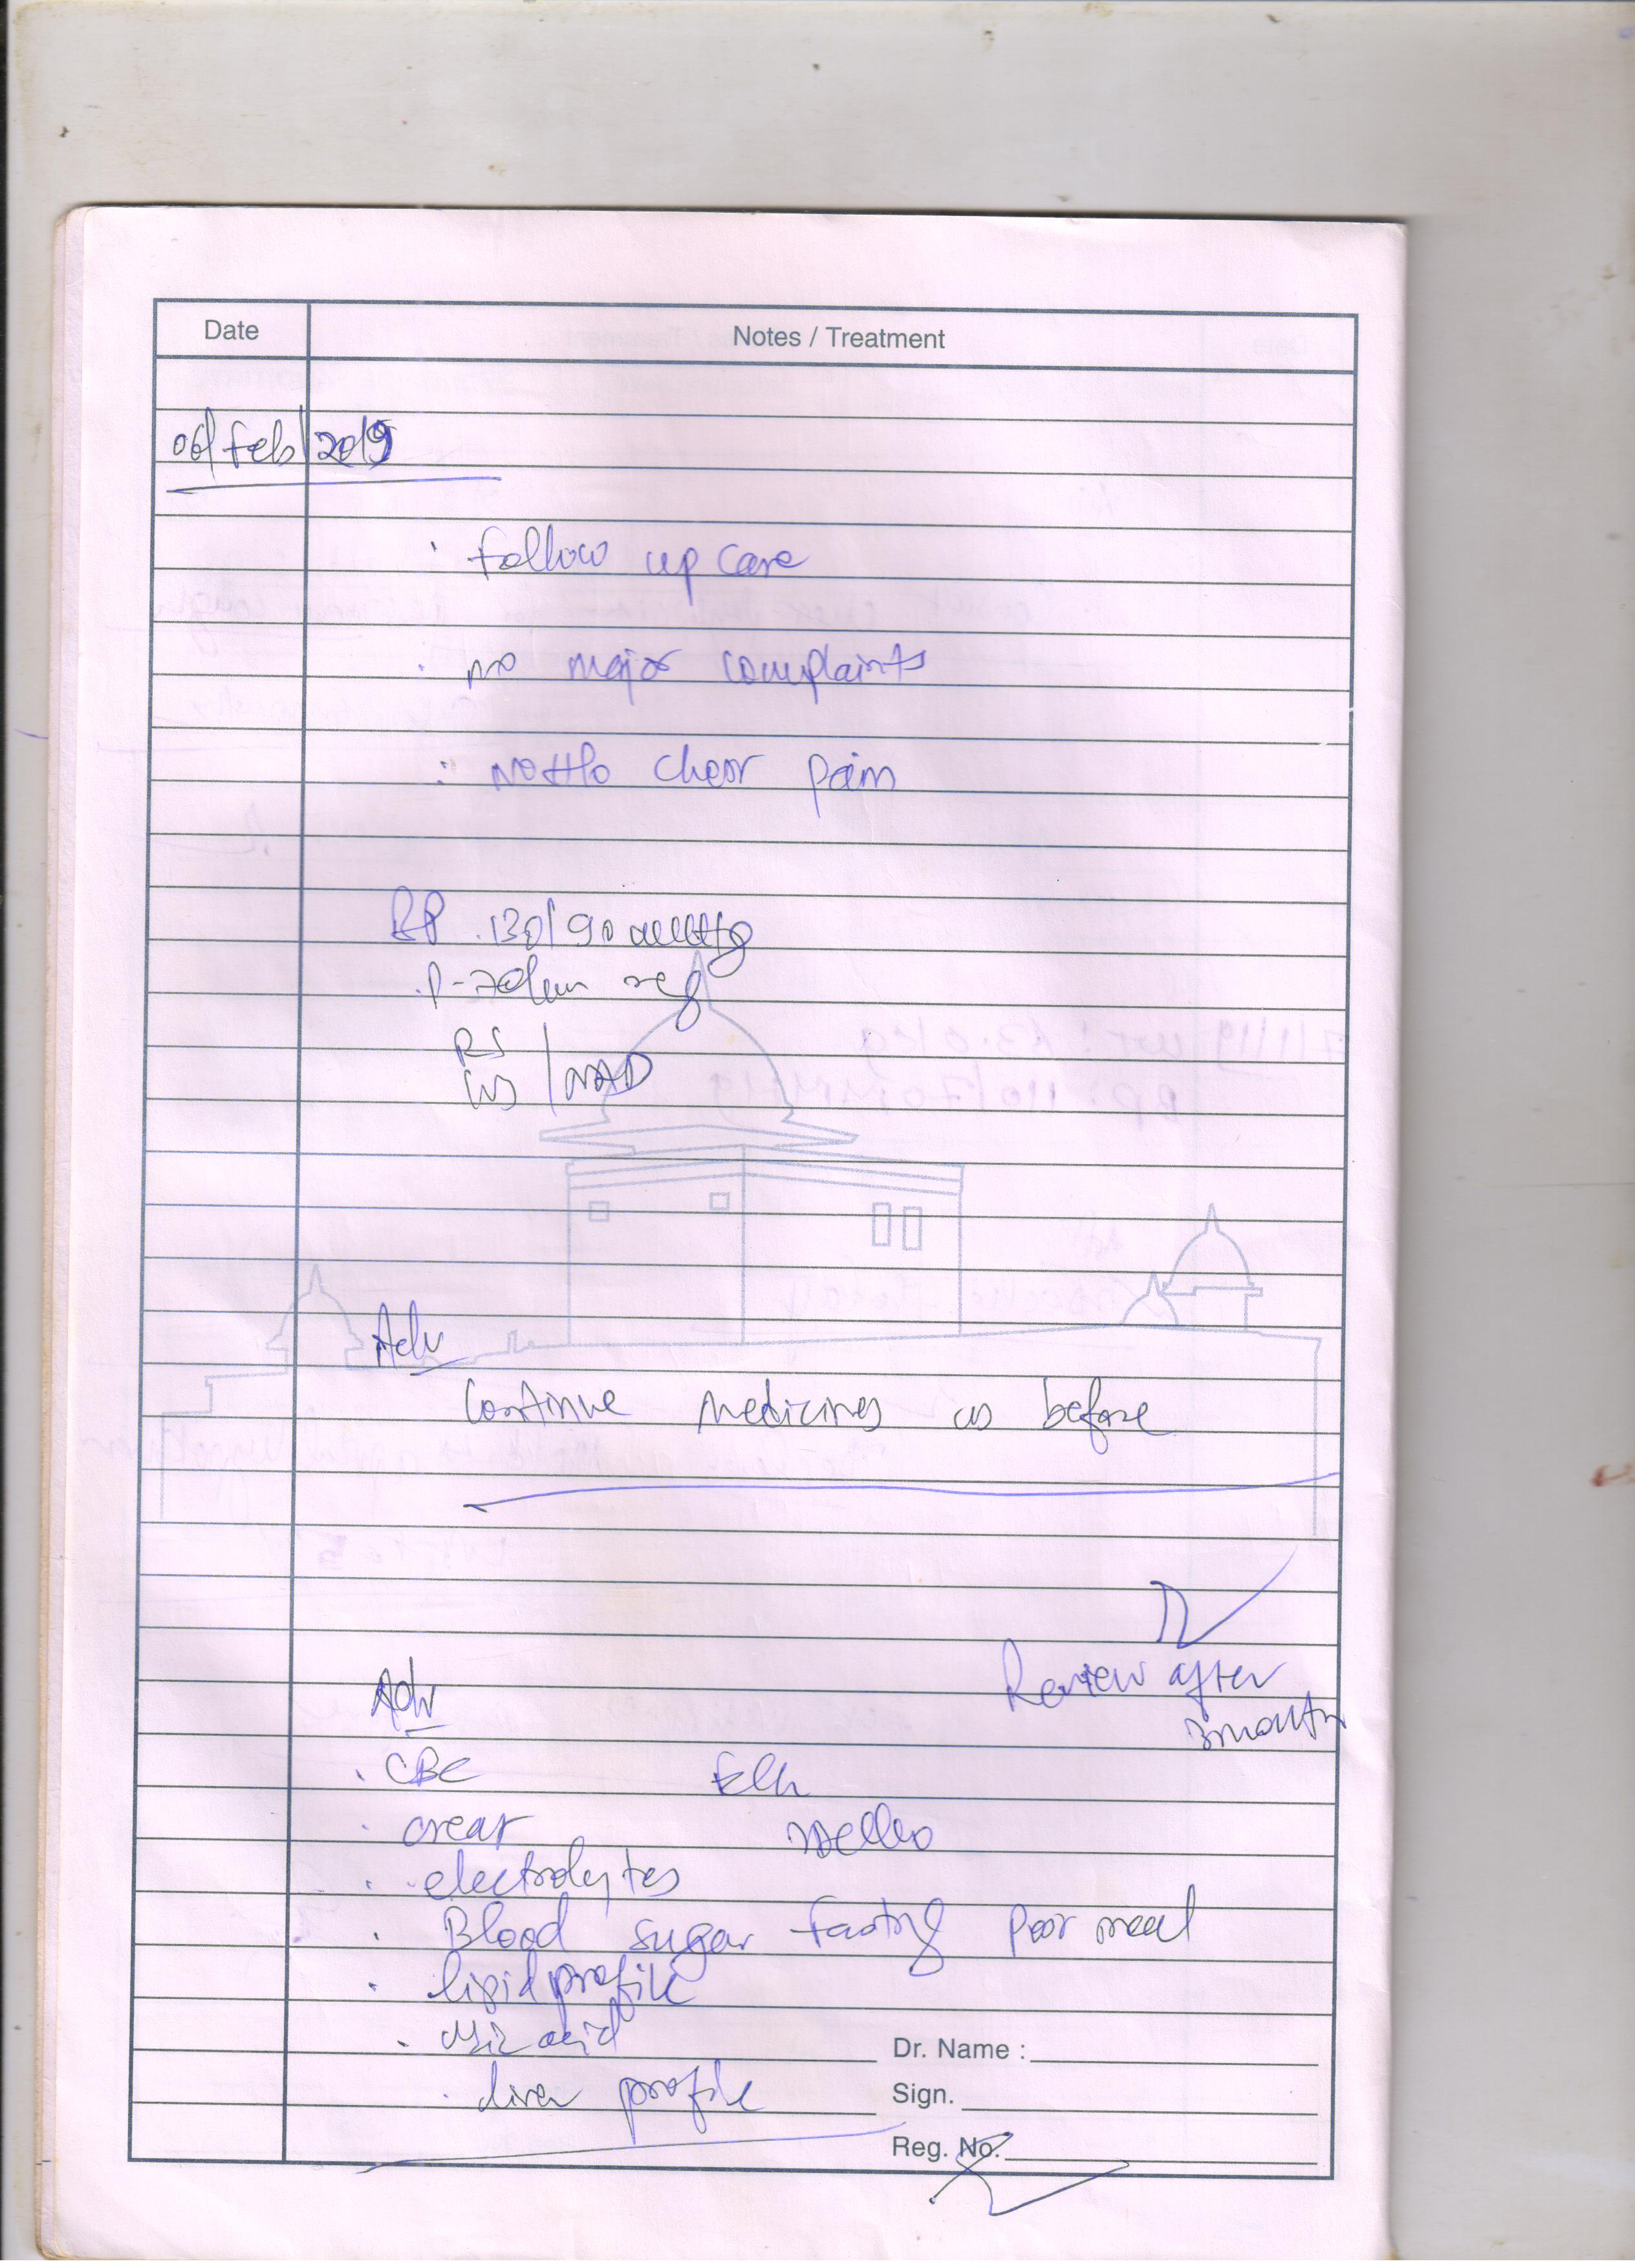 Date Notes / Treatment
06/Feb/2019
· Follow up care
· no major complaints
: No H/o chest pain
BP 130/90 mmHg
P-70/min reg
RS
CVS / NAD
Adv
Continue medicines as before
Review after
3 month
Adv
· CBC
· creat
· electrolytes
· Blood sugar fasting Post meal
· lipid profile
· Uric acid
Dr. Name :
· liver profile
Sign.
Reg. No.